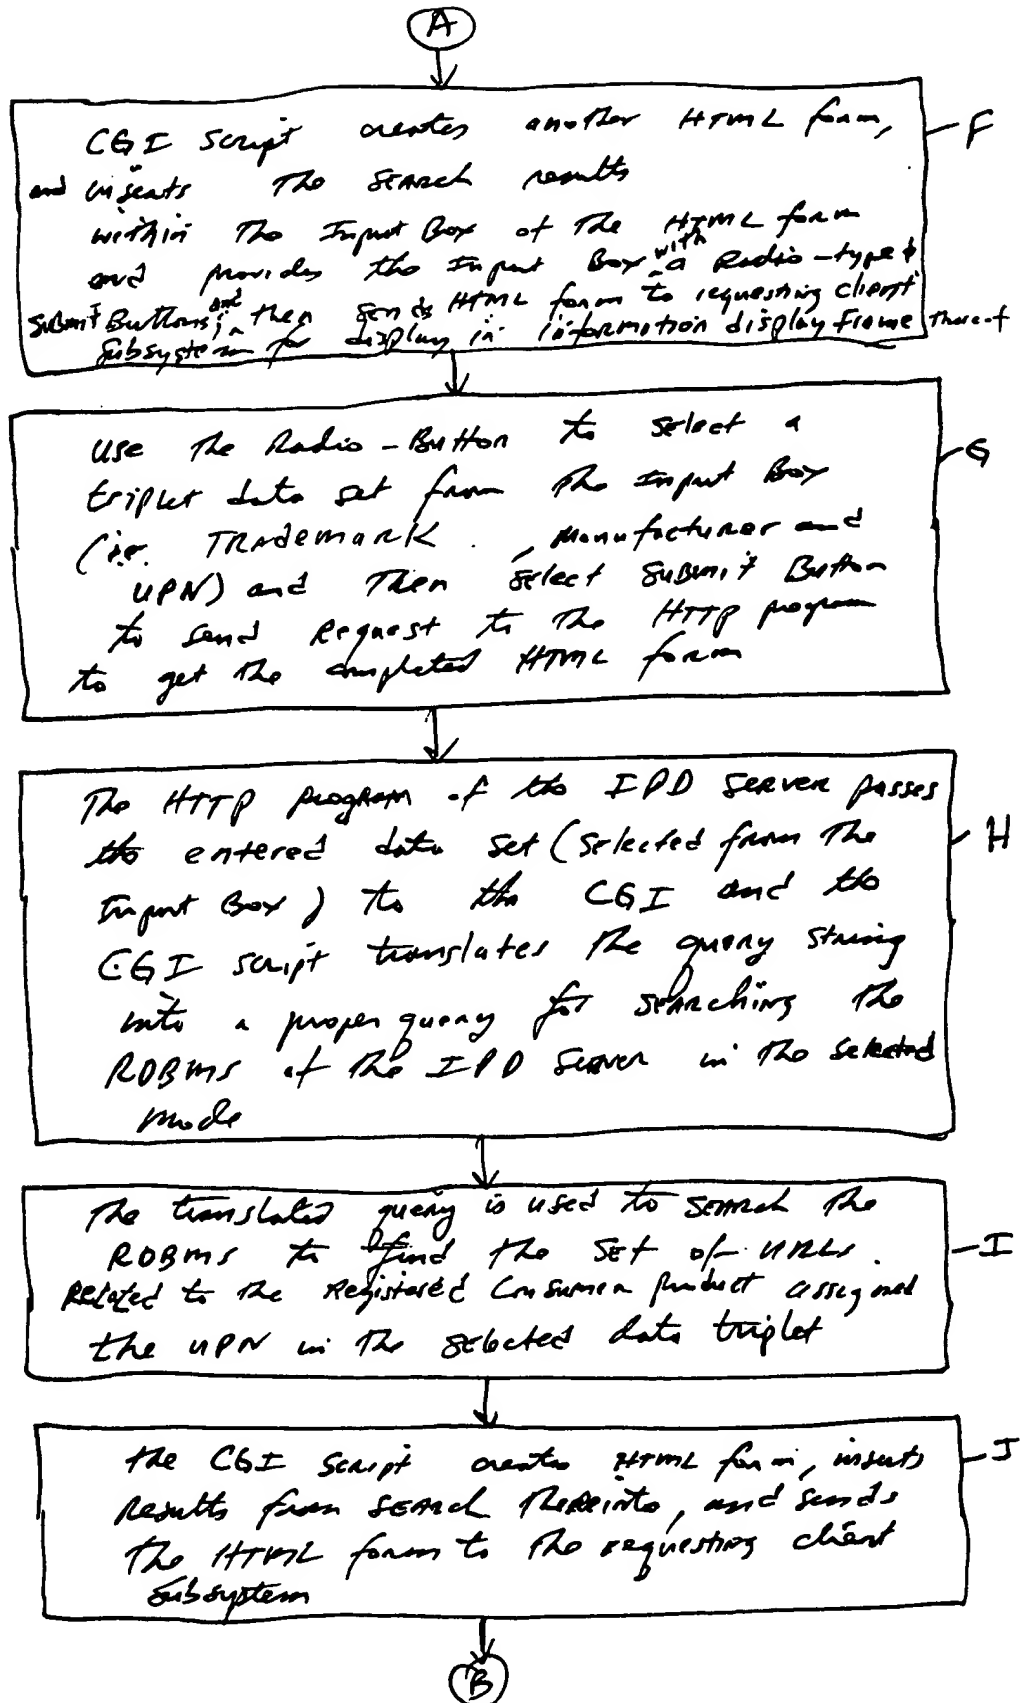 A
CGI Script creates another HTML form,
and inserts the search results
within the Input Box of the HTML form
and provides the Input Box with a Radio-type &
Submit Buttons; and then sends HTML form to requesting client
subsystem for display in information display Frame thereof
F
Use the Radio-Button to select a
triplet data set from the Input Box
(i.e. Trademark, Manufacturer and
UPN) and then select Submit Button
to send Request to the HTTP program
to get the completed HTML form
G
The HTTP program of the IPD Server passes
the entered data set (selected from the
Input Box) to the CGI and the
CGI script translates the query string
into a proper query for searching the
RDBMS of the IPD Server in the selected
mode
H
The translated query is used to search the
RDBMS to find the set of URLs
Related to the Registered Consumer product assigned
the UPN in the selected data triplet
I
the CGI Script creates HTML form, inserts
Results from search thereinto, and sends
the HTML form to the requesting client
subsystem
J
B